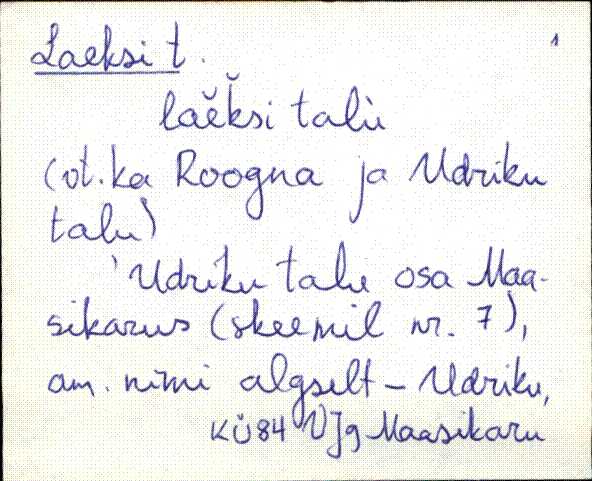 Laeksi t. 1
laĕk̆si talù
(vt. ka Roogna ja Udriku
talu)
'Udriku talu osa Maa-
sikarus (skeemil nr. 7),
am. nimi algselt - Udriku,
KÜ84 VJg Maasikaru